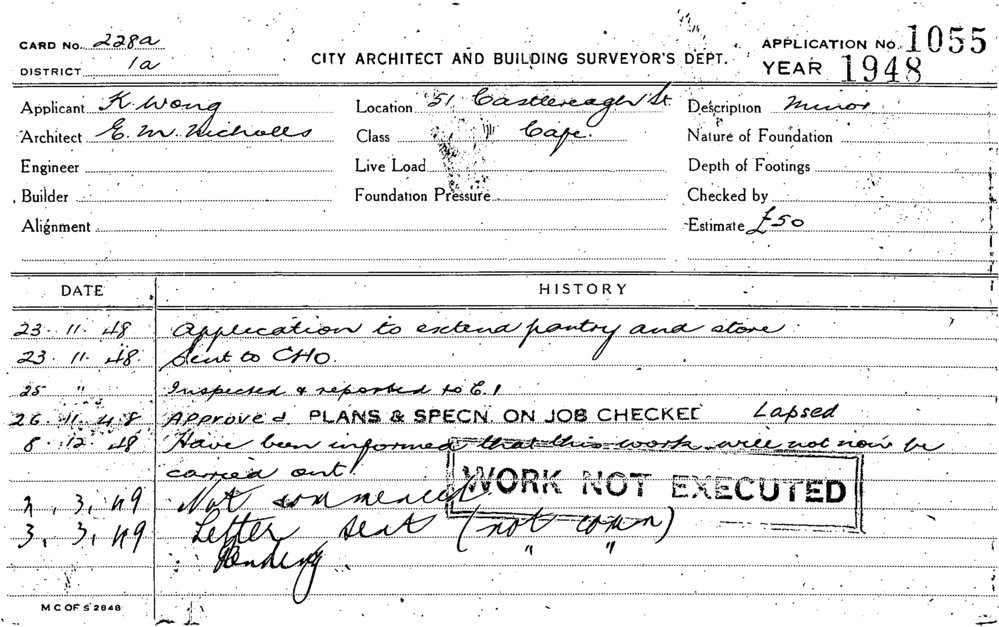 CARD No. 228a
DISTRICT 1a
CITY ARCHITECT AND BUILDING SURVEYOR'S DEPT.
APPLICATION No. 1055
YEAR 1948
Applicant K. Wong Location 51 Castlereagh St. Description Minor
Architect E. M. Nicholls Class Cafe. Nature of Foundation
Engineer Live Load Depth of Footings
Builder Foundation Pressure Checked by
Alignment Estimate £50
DATE HISTORY
23. 11. 48 Application to extend pantry and store
23. 11. 48. Sent to CHO.
25 " Inspected & reported to E.1
26. 11. 48 Approved PLANS & SPECN. ON JOB CHECKED Lapsed
8. 12. 48 Have been informed that this work will not now be
carried out.
WORK NOT EXECUTED
2. 3. 49 Not commenced
3. 3. 49 Letter sent (not comm)
Pending " "
M C OF S 2848